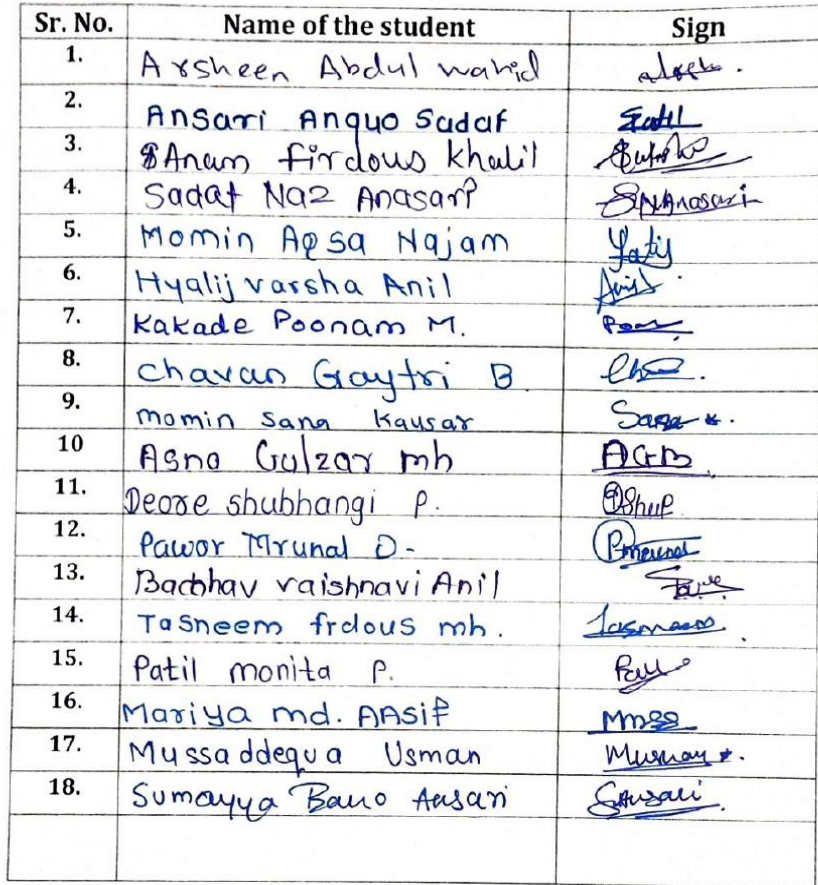 Sr. No. Name of the student Sign
1. Arsheen Abdul wahid
2. Ansari Anquo Sadaf
3. Anam firdous Khalil
4. Sadaf Naz Anasari SNAnasari
5. Momin Aqsa Najam
6. Hyalij varsha Anil Anil
7. Kakade Poonam M. Poo
8. Chavan Gaytri B
9. momin sana Kausar Sana
10 Asna Gulzar mh AGB
11. Deore shubhangi P. Shup
12. Pawor Mrunal D- Pmrunal
13. Bachhav vaishnavi Anil
14. Tasneem frdous mh. Tasneem
15. Patil monita P.
16. Mariya md. AAsif
17. Mussaddequa Usman
18. Sumayya Bano Ansari SAnsari